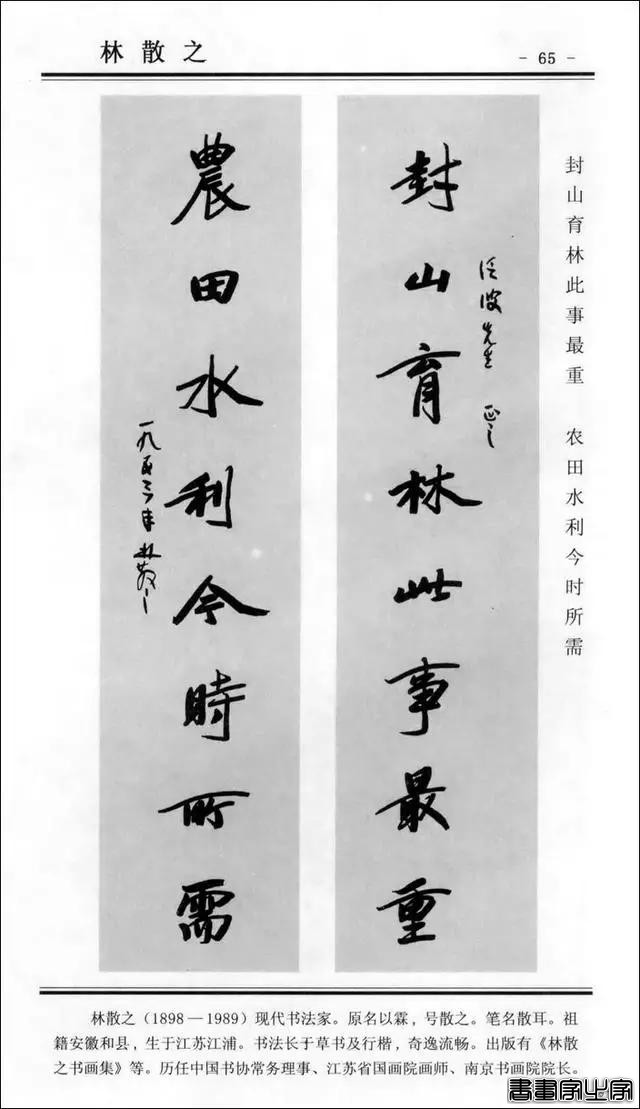 林散之
- 65 -
封山育林此事最重 农田水利今时所需
封山育林此事最重
波先生 正之
農田水利今時所需
一九五三年 林散之
林散之（1898—1989）现代书法家。原名以霖，号散之。笔名散耳。祖
籍安徽和县，生于江苏江浦。书法长于草书及行楷，奇逸流畅。出版有《林散
之书画集》等。历任中国书协常务理事、江苏省国画院画师、南京书画院院长。
書畫家之家